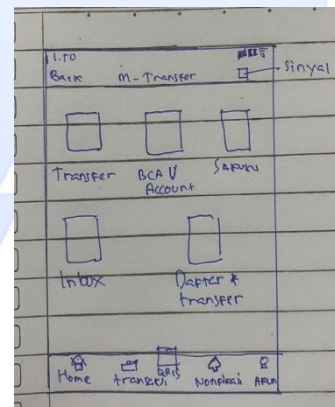 1.50
Back M-Transfer Sinyal
Transfer BCA V Account Sakuku
Inbox Daftar + transfer
Home transaksi QRIS Notifikasi Akun